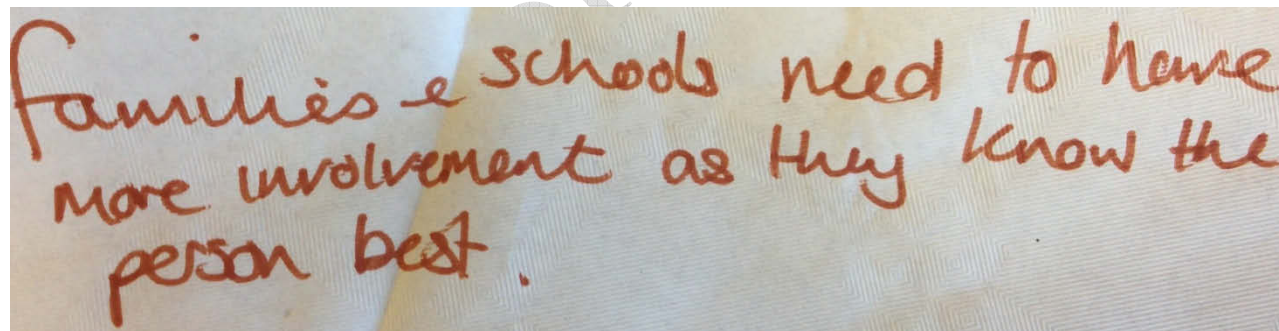 families e schools need to have
more involvement as they know the
person best.